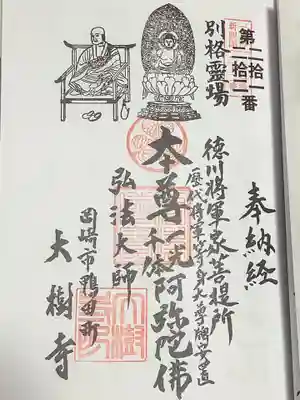 奉納経
第二拾一番
二拾二
別格霊場
徳川将軍家菩提所
歴代将軍等身大尊牌安置
本尊 一光千体阿弥陀佛
弘法大師
岡崎市鴨田町
大樹寺
大樹寺